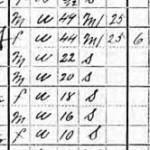 m w 49 M 25
f w 44 M 25 6
m w 22 S
m w 20 S
f w 18 S
m w 16 S
f w 10 S